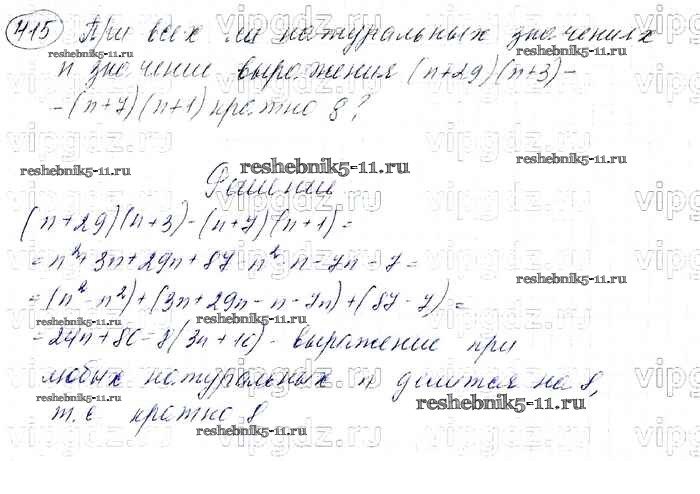 415 При всех ли натуральных значениях
n значение выражения (n+29)(n+3)-
-(n+7)(n+1) кратно 8?
Решение
(n+29)(n+3)-(n+7)(n+1)=
=n²+3n+29n+87-n²-n-7n-7=
=(n²-n²)+(3n+29n-n-7n)+(87-7)=
=24n+80=8(3n+10)- выражение при
любых натуральных n делится на 8,
т.е кратно 8
vipgdz.ru
reshebnik5-11.ru